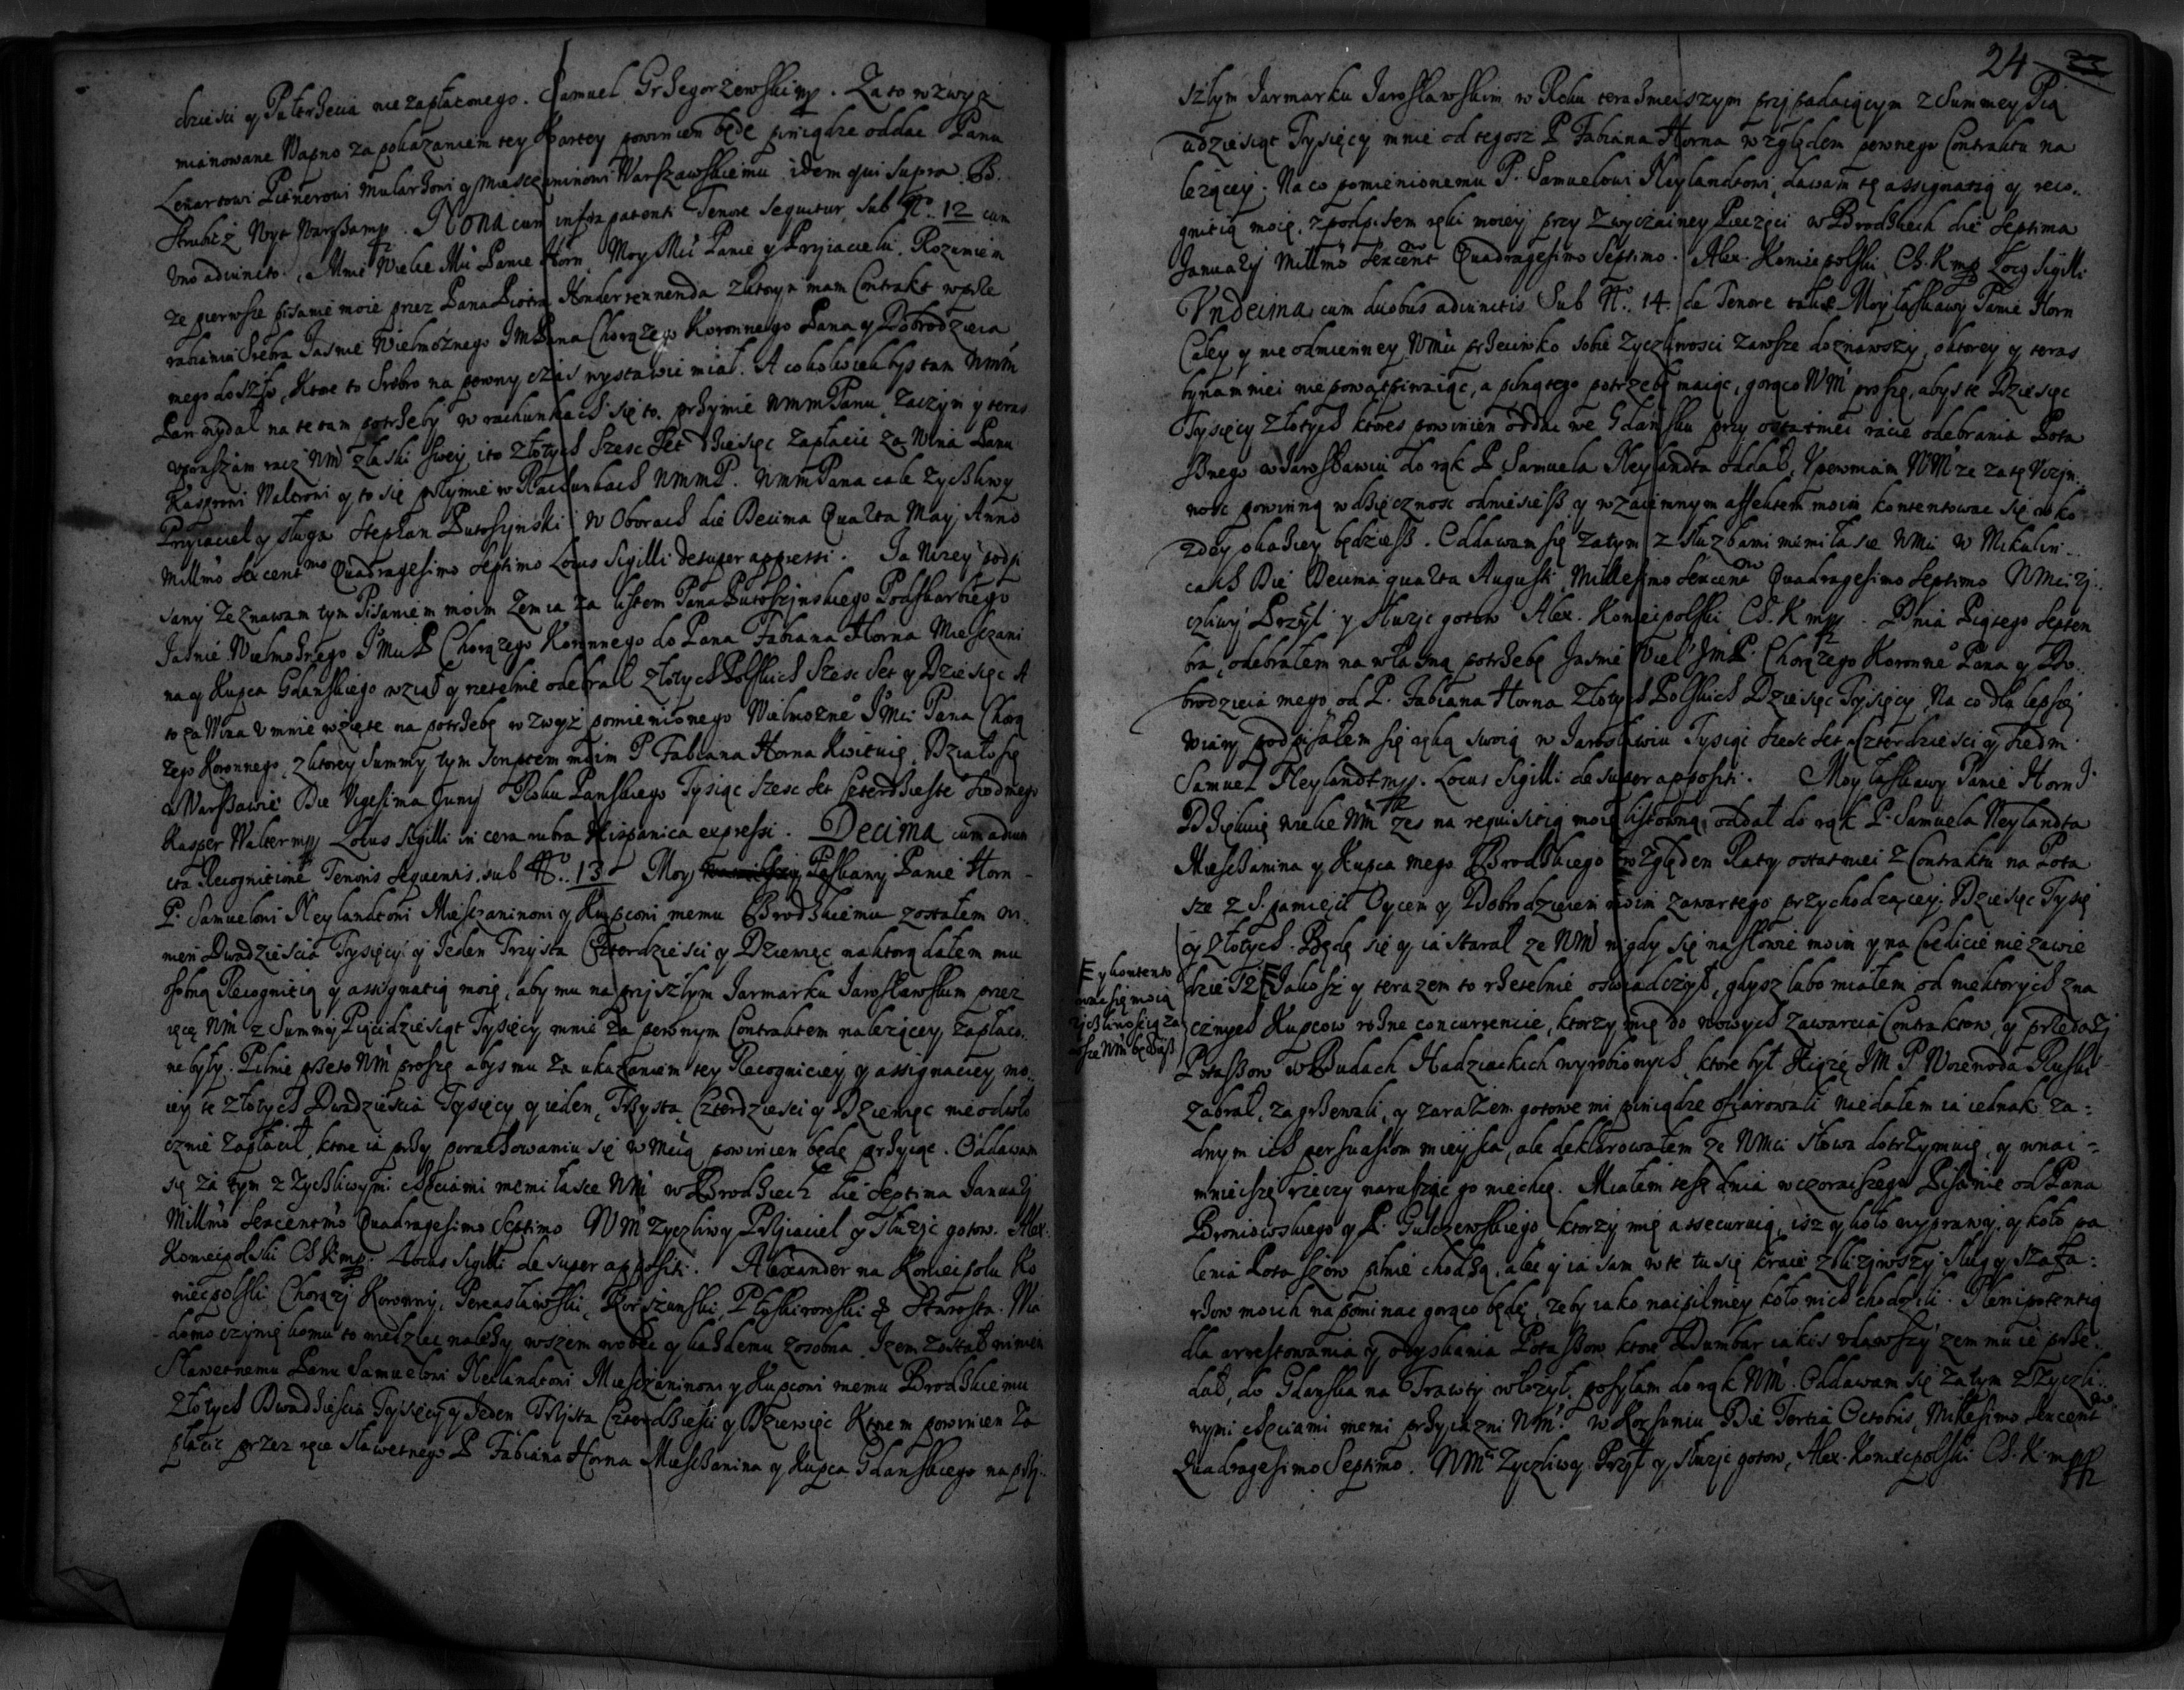 dzieści y Pułtrzecia niezapłaconego. Samuel Grzegorzewski mp. Zato wzwyż
mianowane Wapno za pokazaniem tey Kartey powinien będę piniądze oddac Panu
Lenartowi Pitnerowi Mularzowi y Miesczaninowi Warszawskiemu idem qui supra
Nona cum infra patenti Tenore sequitur, sub No. 12 cum
uno adiuncto. a Mnie Wielce Mci Panie Horn Moy Mci Panie y Przyiacielu. Rozumiem
ze pierwsze pisanie moie przez Pana Piotra z ktorym mam Contrakt wzgle
rabiania Srebra Jasnie Wielmożnego JMPana Chorążego Koronnego Pana y Dobrodzieia
mego doszło, Ktore to Srebro na pewny czas wystawic miał. A cokolwiek byś tam WMM
Pan wydał na te tam potrzeby w rachunkach się to przyimie WMMPanu, Zaczym y teras
upraszam racz WM z łaski swey ito złotych Szesc Set Dziesięc zapłacic za Wina Panu
Kasprowi Walterowi y to się przyimie w Rachunkach WMMP. WMMPana cale życzliwy
Przyiaciel y sługa Stephan Putoszynski w Oborach die Decima Quarta May Anno
Millmo Sexcentmo Quadragesimo Septimo Locus Sigilli desuper appressi. Ja Nizey podpi
sany Zeznawam tym Pisaniem moim Zem ia za listem Pana Putoszynskiego Podskarbiego
Jasnie Wielmożnego JMci P Chorążego Koronnego do Pana Fabiana Horna Miesczani
na y Kupca Gdanskiego wziął y rzetelnie odebrał złotych Polskich Szesc Set y Dziesięc A
to za Wina u mnie wzięte na potrzebę wzwyż pomienionego Wielmożneo JMci Pana Chorą
żego Koronnego, z ktorey Summy tym scriptem moim P Fabiana Horna Kwituię. Działo się
w Warszawie Die Vigesima Juny Roku Panskiego Tysiąc Szesc Set Czterdzieste Siodmego
Kasper Walter mp Locus Sigilli in cera rubra Hispanica expressi. Decima cum adiun
cta Recognitione Tenoris sequentis sub No. 13 Moy Łaskawy Panie Horn
P. Samuelowi Neylandtowi Miesczaninowi y Kupcowi memu Brodzkiemu zostałem wi
nien Dwadziescia Tysięcy y Jeden Trzysta Czterdziesci y Dziewięc na ktorą dałem mu
osobną Recognitią y assignatią moię, aby mu na przyszłym Jarmarku Jarosławskim przez
ręcę WM z Summy Pięcidziesiąt Tysięcy mnie za pewnym Contraktem należącey, zapłaco
ne były. Pilnie przeto WM proszę abys mu za ukazaniem tey Recogniciey y assignaciey mo
iey te złotych Dwadziescia Tysięcy y ieden, Trzysta Czterdziesci y Dziewięc nieodwło
cznie zapłacił, ktore ia przy porachowaniu się w Mcią powinien będę przyiąc. Oddawam
się za tym z życzliwymi chęciami memi łasce WM w Brodziech die Septima January
Millmo Sexcentmo Quadragesimo Septimo WM Zyczliwy Przyiaciel y służyc gotow. Alex.
Koniecpolski Ch K mp. Locus Sigilli desuper appositi. Alexander na Koniecpolu Ko
niecpolski Chorąży Koronny, Pereasławski, Korszunski, Płoskirowski & Starosta. Wia
domo czynię komu to wiedziec należy wszem wobec y każdemu zosobna. Izem został winien
Sławetnemu Panu Samuelowi Neilandtowi Miesczaninowi y Kupcowi memu Brodzkiemu
Złotych Dwadziescia Tysięcy y Jeden Trzysta Czterdziesci y Dziewięc Ktorem powinien za
płacic przez ręce sławetnego P Fabiana Horna Miesczanina y Kupca Gdanskiego na przy
24
szłym Jarmarku Jarosławskim w Roku terasnieiszym przypadaiącym z Summey Pię
udziesiąt Tysięcy mnie od tegosz P Fabiana Horna względem pewnego Contraktu na
leżącey. Na co pomienionemu P. Samuelowi Neylandtowi dawam tę assignatią y reco
gnitią moię, z podpisem ręki moiey przy zwyczainey Pieczęci w Brodziech die Septima
January Millmo Sexcentmo Quadragesimo Septimo. Alex. Koniecpolski Ch. K mp Locus Sigilli
Undecima cum duobus adiunctis Sub No. 14. de Tenore tali Moy łaskawy Panie Horn
Całey y nieodmienney WMci przeciwko sobie życzliwosci zawsze doznawszy, o ktorey y teras
bynamniei niepowątpiwaiąc, a pilną tego potrzebę maiąc, gorąco WM proszę, abys te Dziesięc
Tysięcy Złotych ktores powinien oddac we Gdansku przy ostatniei racie odebrania Pota
sznego w Jarosławiu do rąk P Samuela Neylandta oddał, Upewniam WM ze za tę Uczyn
nosc powinną wdzięcznosc odniesiesz y wzaiemnym affektem moim kontentowac się w ko
zdey okaziey będziesz. Oddawam się zatym z służbami memi łasce WMci w Mikulin
cach Die Decima quarta Augusti Millesimo Sexcentmo Quadragesimo Septimo WMci ży
czliwy Przyl y służyc gotow Alex. Koniecpolski Ch. K mp. Dnia Piątego Septem
bra, odebrałem na własną potrzebę Jasnie Wiel JmP. Chorążego Koronneo Pana y Do
brodzieia mego od P. Fabiana Horna Złotych Polskich Dziesięc Tysięcy, Na co dla lepszey
wiary podpisałem się ręką swoią w Jarosławiu Tysiąc Szesc Set Czterdziesci y Siedm
Samuel Neylandt mp. Locus Sigilli desuper appositi. Moy łaskawy Panie Horn
Dziękuię wielce WM zes na requisitią moię listowną oddał do rąk P. Samuela Neylandta
Miesczanina y Kupca mego Brodzkiego względem Raty ostatniei z Contraktu na Pota
sze z S. pamięci Oycem y Dobrodzieiem moim zawartego przychodzącey Dziesięc Tysię
cy złotych. Będę się y ia starał ze WM nigdy się na słowie moim y na Credicie niezawie
dziesz Jakosz y terazem to rzetelnie oswiadczył, gdysz lubo miałem od niektorych zna
cznych Kupcow rożne concurrencie, ktorzy mię do nowych zawarcia Contraktow, y przedaży
Potaszow w Budach Hadziackich wyrobionych, ktore był Xiążę JM P Woiewoda Ruski
zabrał, zagrzewali, y zarazem gotowe mi piniądze ofiarowali niedałem ia iednak za=
dnym ich persuasiom mieysca, ale deklarowałem ze WMci słowa dotrzymuię, y wnai=
mnieiszey rzeczy naruszyc go niechcę. Miałem tesz dnia wczoraiszego Pisanie od Pana
Broniowskiego y P. Gulczewskiego ktorzy mię assecuruią, isz y koło wyprawy, y koło pa
lenia Potaszow pilnie chodzą, alec y ia sam w te tu się kraie zbliżywszy sług y szafa=
rzow moich napominac gorąco będę, żeby iako naipilniey koło nich chodzili. Plenipotentią
dla arrestowania y odyskania Potaszow ktore Dumbar iakis udawszy zem mu ie prze
dał, do Gdanska na Trawty włożył, posyłam do rąk WM. Oddawam się zatym z życzli
wymi chęciami memi przyiazni WM. w Korsuniu Die Tertia Octobris, Millesimo Sexcentmo
Quadragesimo Septimo. WM Zyczliwy Przyl y służyc gotow, Alex. Koniecpolski Ch. K mp
y kontento
wac się moią
życzliwoscią za
wsze WM będziesz